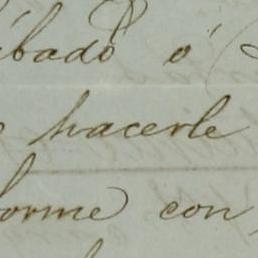 ábado ó
hacerle
forme con